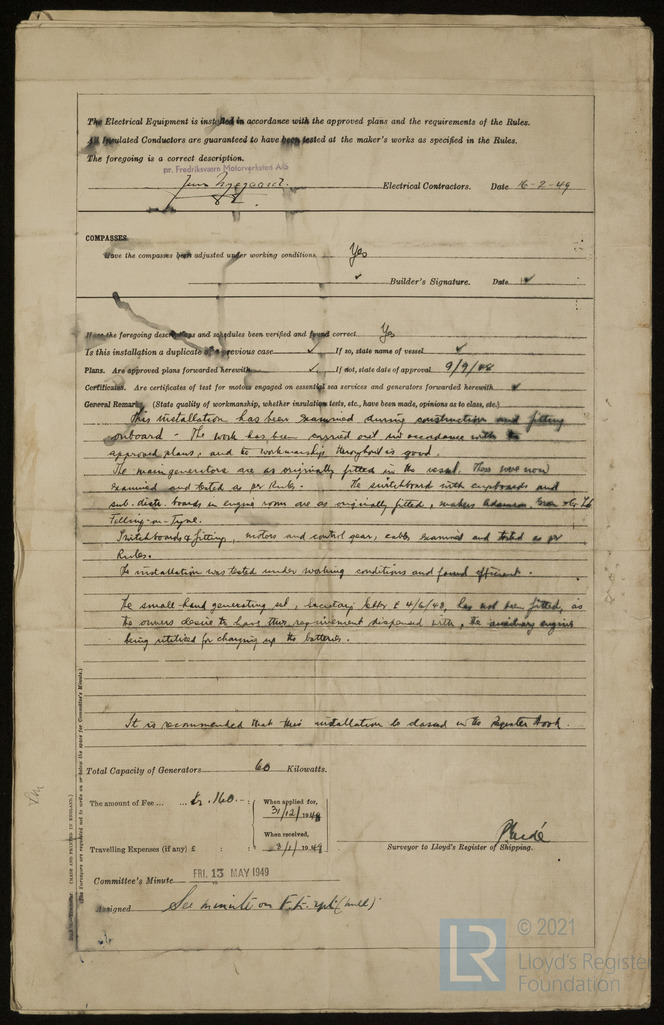 The Electrical Equipment is installed in accordance with the approved plans and the requirements of the Rules.
All Insulated Conductors are guaranteed to have been tested at the maker's works as specified in the Rules.
The foregoing is a correct description.
pr. Fredriksværn Motorverksted A/S
Electrical Contractors. Date 16-2-49
COMPASSES.
Have the compasses been adjusted under working conditions Yes
✓ Builder's Signature. Date ✓
Have the foregoing descriptions and schedules been verified and found correct Yes
Is this installation a duplicate of a previous case ✓ If so, state name of vessel ✓
Plans. Are approved plans forwarded herewith ✓ If not, state date of approval 9/9/48
Certificates. Are certificates of test for motors engaged on essential sea services and generators forwarded herewith ✓
General Remarks (State quality of workmanship, whether insulation tests, etc., have been made, opinions as to class, etc.)
This installation has been examined during construction and fitting
onboard - The work has been carried out in accordance with the
approved plans, and the workmanship throughout is good.
The main generators are as originally fitted in the vessel. These were now
examined and tested as per Rules. The switchboard with cupboards and
sub. distr. boards in engine room are as originally fitted, makers
Felling-on-Tyne.
Switchboards & fitting, motors and control gear, cables examined and tested as per
Rules.
The installation was tested under working conditions and found efficient.
The small hand generating set, Secretary's letter E 4/6/48, has not been fitted, as
the owners desire to have this requirement dispensed with, the auxiliary engine
being utilized for charging up the batteries.
It is recommended that this installation be classed in the Register Book.
Total Capacity of Generators 60 Kilowatts.
The amount of Fee ... ... kr. 160.- : When applied for,
31/12/1948
When received,
Travelling Expenses (if any) £ : : 1949
Surveyor to Lloyd's Register of Shipping.
Committee's Minute FRI. 13 MAY 1949
Assigned See minute on F.E. rpt
(MADE AND PRINTED IN ENGLAND.)
(The Surveyors are requested not to write on or below the space for Committee's Minute.)
LR
© 2021
Lloyd's Register
Foundation